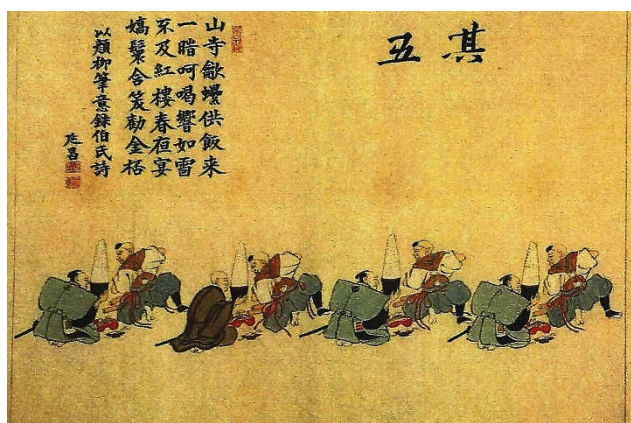 其五
山寺供飯来
一喑呵喝響如雷
不及紅樓春夜宴
嬌鬟含笑勸金桮
以顔柳筆意録伯氏詩
昌